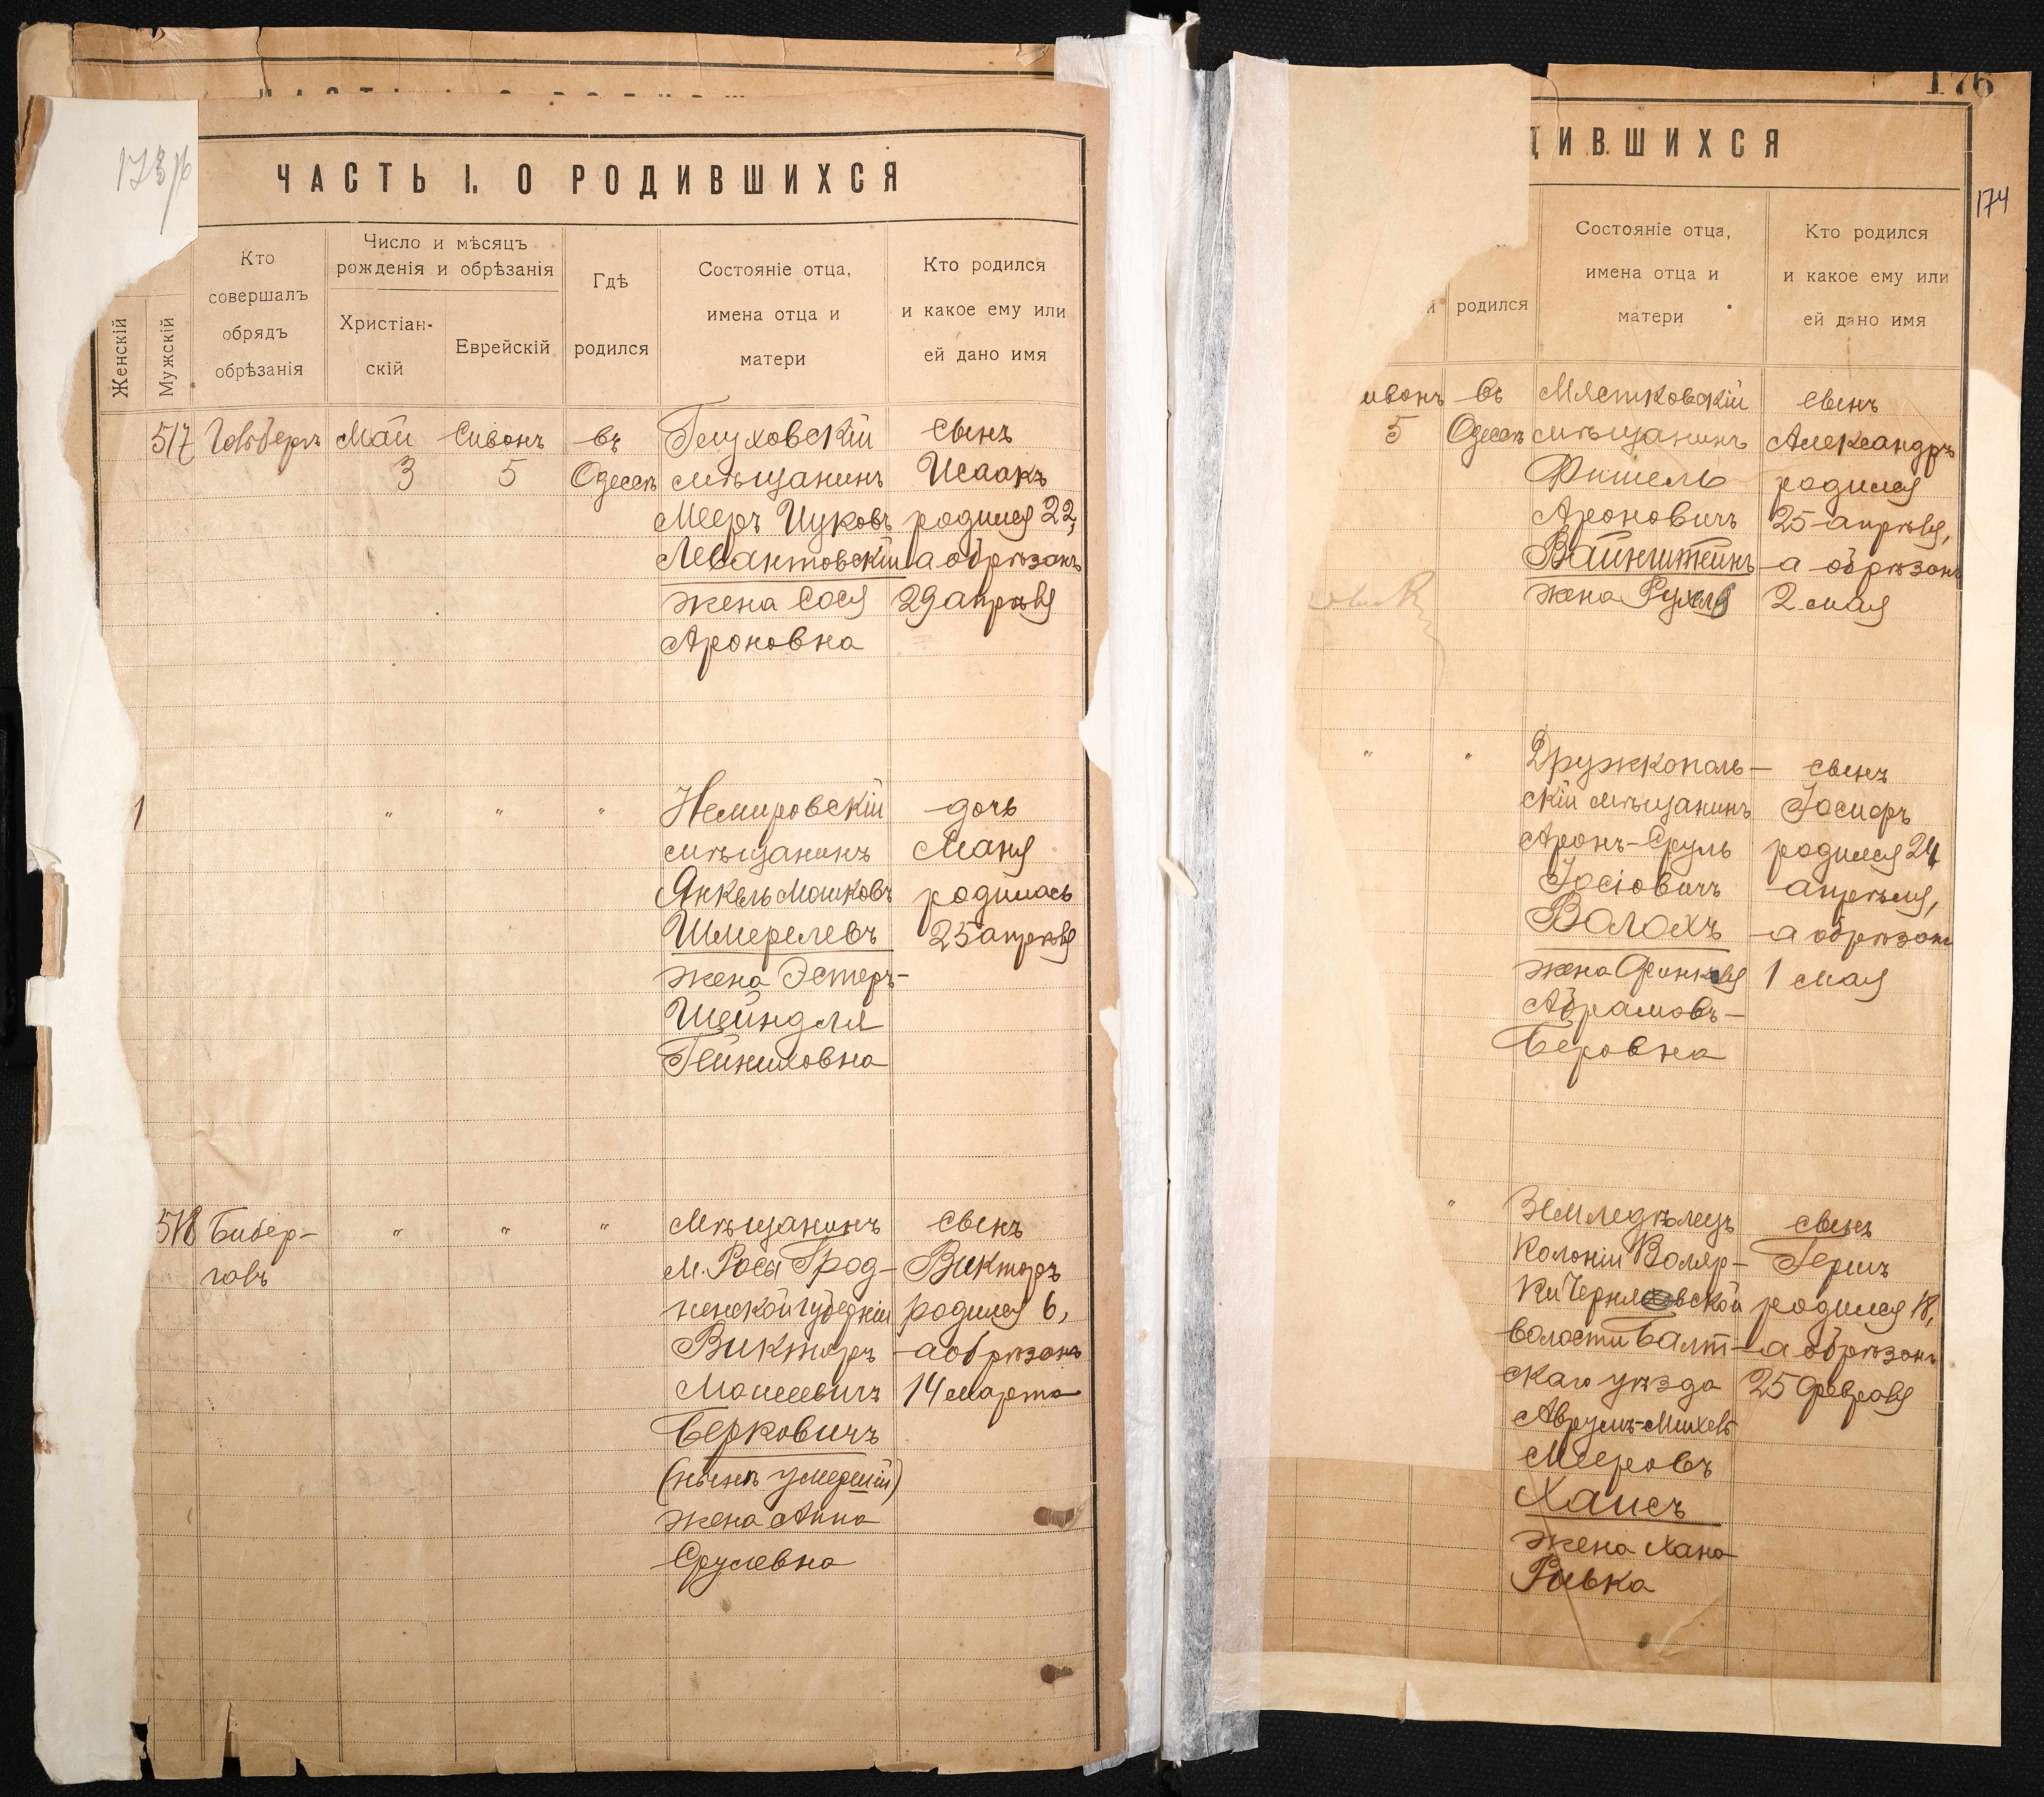 173/б
ЧАСТЬ I. О РОДИВШИХСЯ
Женскій
Мужскій
Кто
совершалъ
обрядъ
обрѣзанія
Число и мѣсяцъ
рожденія и обрѣзанія
Христіан-
скій
Еврейскій
Гдѣ
родился
Состояніе отца,
имена отца и
матери
Кто родился
и какое ему или
ей дано имя
517
Май
3
Сивонъ
5
въ
Одессѣ
Глуховскій
мѣщанинъ
Мееръ Ицковъ
Левантовскій
жена Сося
Ароновна
сынъ
Исаакъ
родился 22,
а обрѣзанъ
29 апрѣля
1
"
"
"
Немировскій
мѣщанинъ
Янкель Мошковъ
Шмерелевъ
жена Эстеръ-
Шейндля
Гейниховна
дочь
Маня
родилась
25 апрѣля
518
Бибер-
галъ
"
"
"
Мѣщанинъ
м. Росы Грод-
ненской губерніи
Викторъ
Моисеевичъ
Берковичъ
(нынѣ умершій)
жена Анна
Срулевна
сынъ
Викторъ
родился 6,
а обрѣзанъ
14 марта
176
174
ДИВШИХСЯ
й
родился
Состояніе отца,
имена отца и
матери
Кто родился
и какое ему или
ей дано имя
ивонъ
5
въ
Одессѣ
Мястковскій
мѣщанинъ
Фишель
Ароновичъ
Вайнштейнъ
жена Рухля
сынъ
Александръ
родился
25 апрѣля,
а обрѣзанъ
2 мая
"
"
Дружкополь-
скій мѣщанинъ
Аронъ-Сруль
Іосіовичъ
Волохъ
жена Финкля
Абрамовъ-
Беровна
сынъ
Іосифъ
родился 24
апрѣля,
а обрѣзанъ
1 мая
"
Земледѣлецъ
колоніи Воляр-
ки Черняховской
волости Балт-
скаго уѣзда
Аврумъ-Михель
Мееровъ
Хаисъ
жена Хана
Ривка
сынъ
Гершъ
родился 18,
а обрѣзанъ
25 февраля